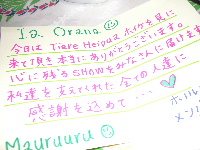 Ia Orana
今日は Tiare Heipuaホイケを見に
来て頂き本当にありがとうございます。
心に残るSHOWをみなさんに届けます
私達を支えてくれた全ての人達に
感謝を込めて…
Mauruuru